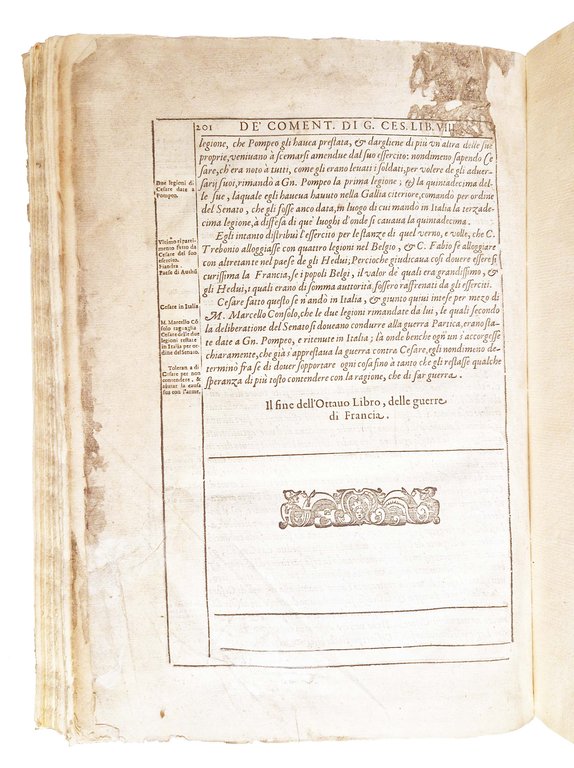 201 DE' COMENT. DI G. CES. LIB. VIII
legione, che Pompeo gli hauea prestata, & dargliene di più vn altra delle sue
proprie, veniuano à scemarsi amendue dal suo essercito: nondimeno sapendo Ce
sare, ch'era noto a tutti, come gli erano leuati i soldati, per volere de gli aduer-
sarij suoi, rimandò a Gn. Pompeo la prima legione; & la quintadecima del-
le sue, laquale egli haueua hauuto nella Gallia citeriore, comando per ordine
del Senato, che gli fosse anco data, in luogo di cui mandò in Italia la terzade-
cima legione, a diffesa di que' luoghi d'onde si cauaua la quintadecima.
Egli intanto distribuì l'essercito per le stanze di quel verno, e volle, che C.
Trebonio alloggiasse con quattro legioni nel Belgio, & C. Fabio fe alloggiare
con altretante nel paese de gli Hedui; Percioche giudicaua così douere essere si
curissima la Francia, se i popoli Belgi, il valor de' quali era grandissimo, &
gli Hedui, i quali erano di somma autorità, fossero raffrenati da gli esserciti.
Cesare fatto questo se n'andò in Italia, & giunto quiui intese per mezo di
M. Marcello Consolo, che le due legioni rimandate da lui, le quali secondo
la deliberatione del Senato si doueano condurre alla guerra Partica, erano sta-
te date a Gn. Pompeo, e ritenute in Italia; là onde benche ogn'un s'accorgesse
chiaramente, che già s'apprestaua la guerra contra Cesare, egli nondimeno de-
terminò fra se di douer sopportare ogni cosa fino à tanto che gli restasse qualche
speranza di più tosto contendere con la ragione, che di far guerra.
Il fine dell'Ottauo Libro, delle guerre
di Francia.
Due legioni di
Cesare date a
Pompeo.
Vltimo riparti-
mento fatto da
Cesare del suo
essercito.
Fiandra.
Paese di Authũ
Cesare in Italia
M. Marcello Cõ
solo ragguaglia
Cesare delle due
legioni restate
in Italia per or-
dine del Senato.
Toleranza di
Cesare per non
contendere, &
aiutar la causa
sua con l'arme.